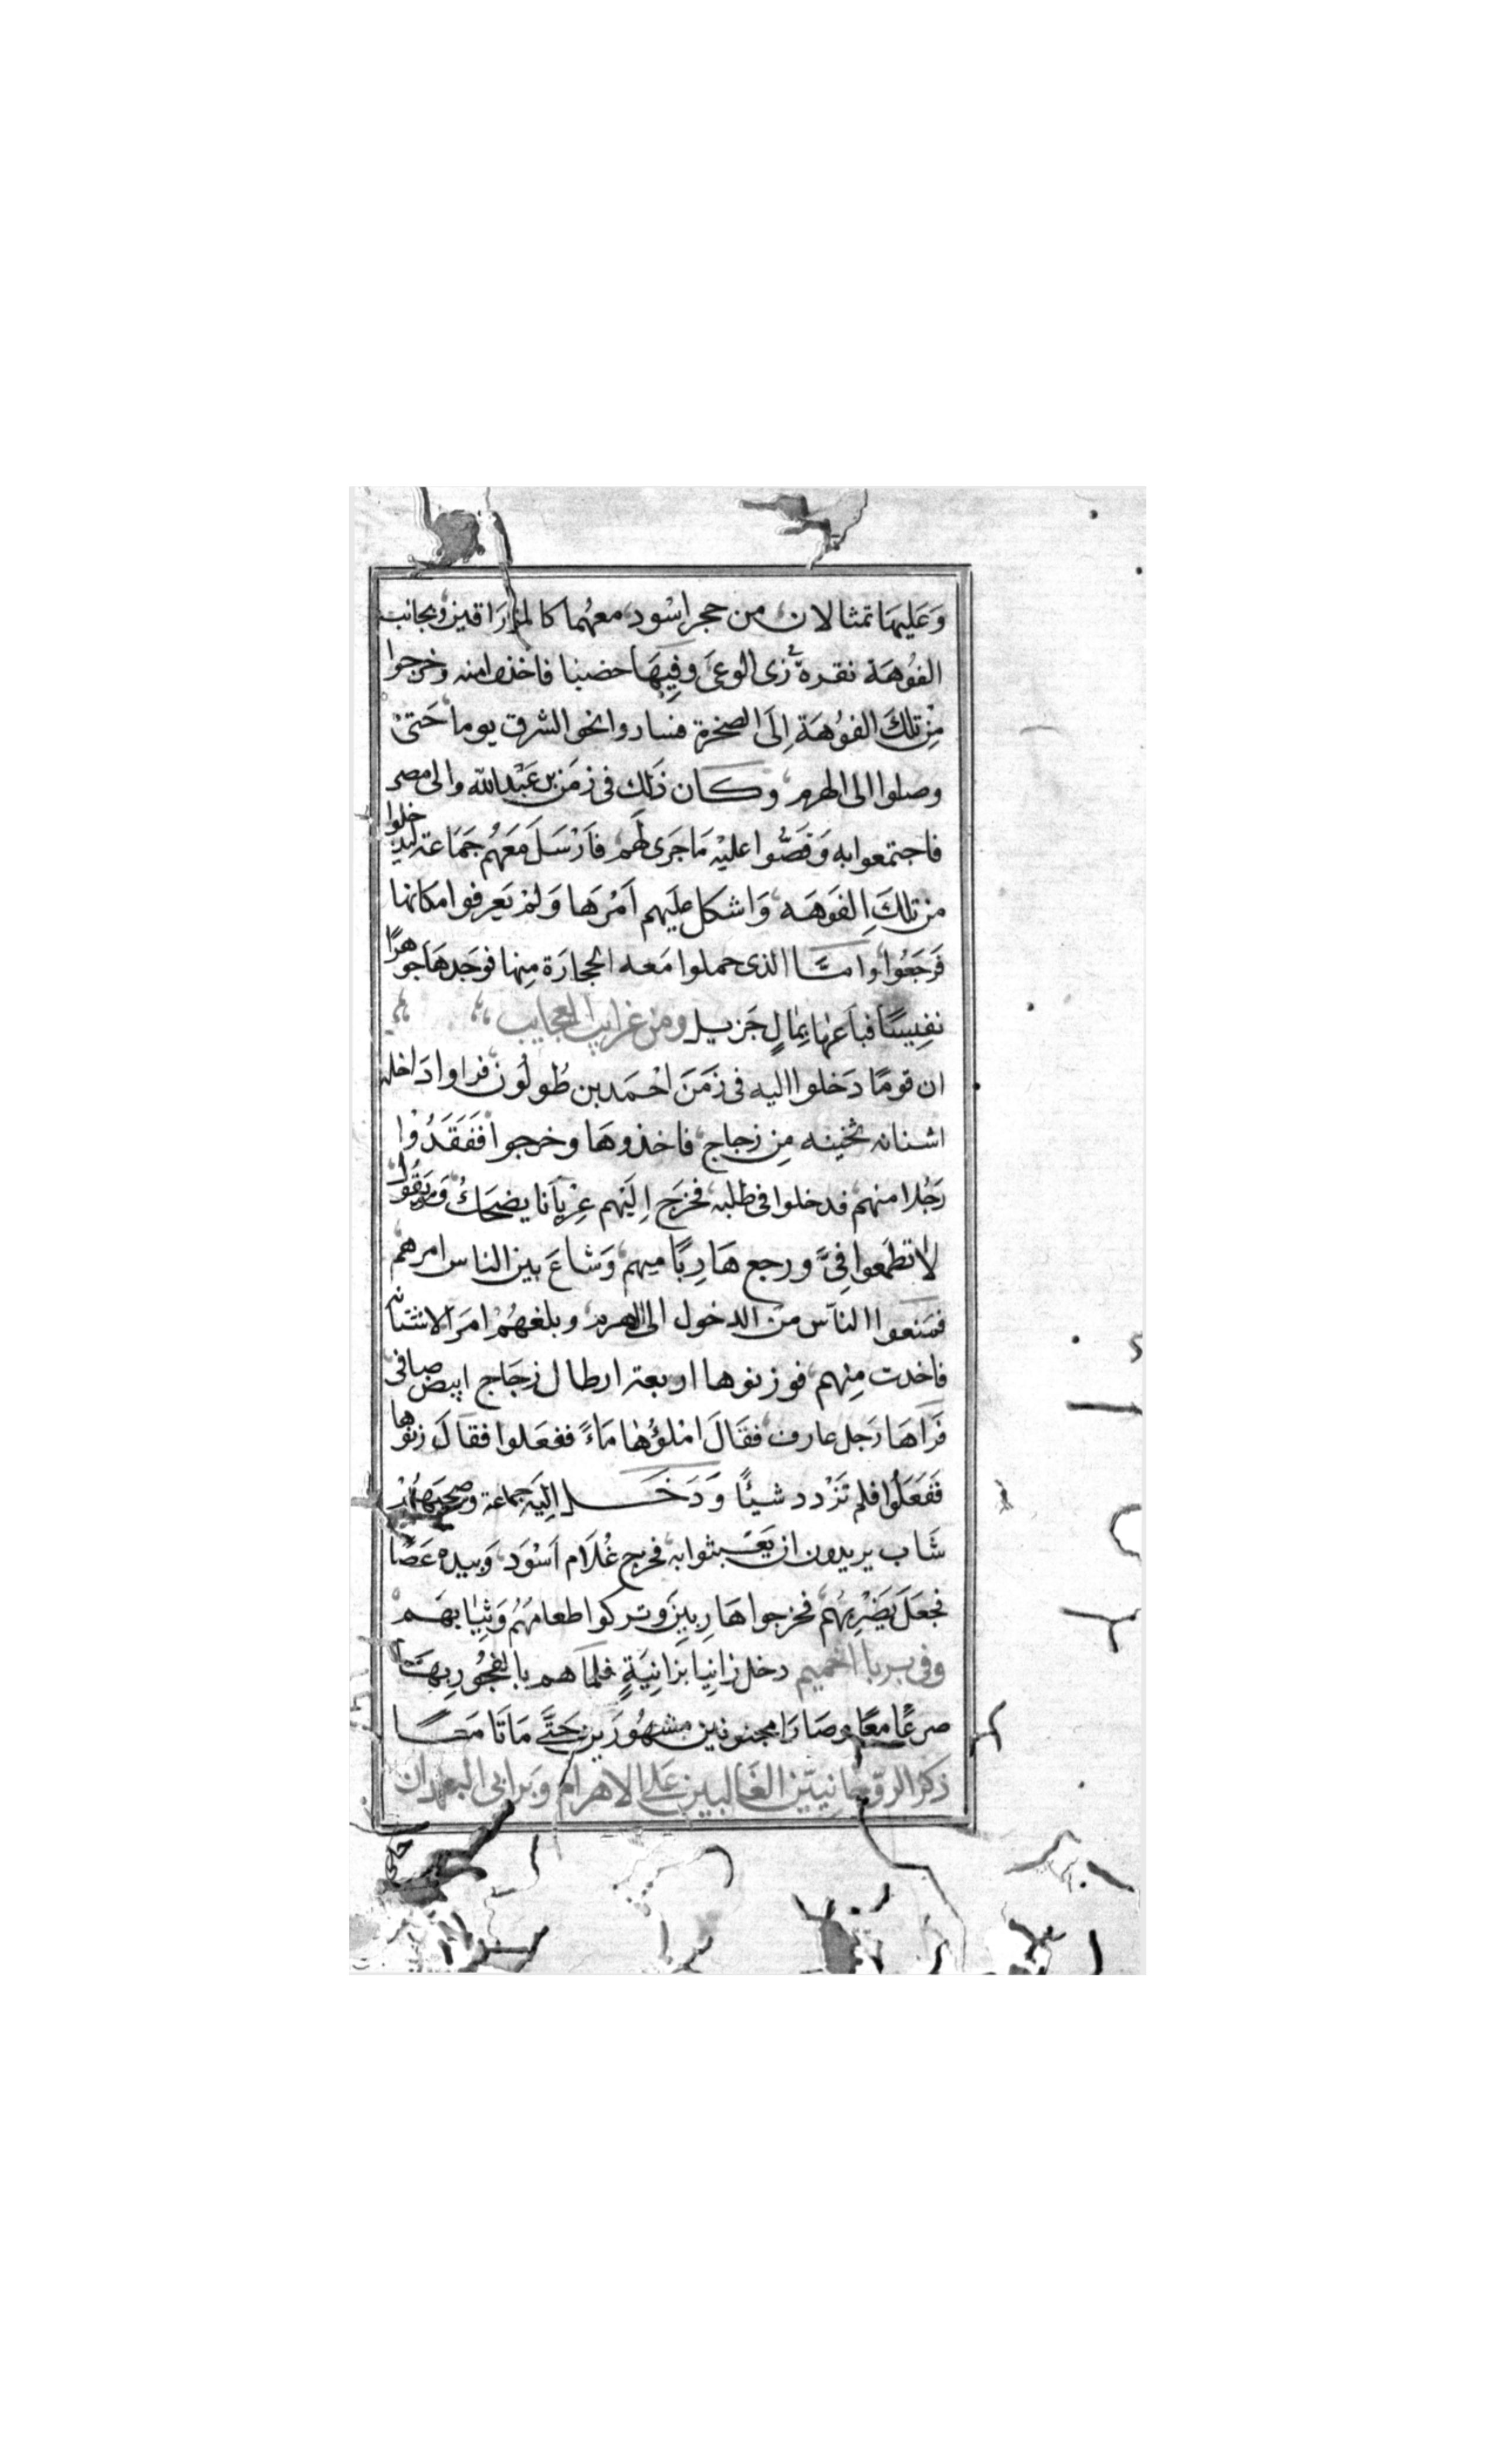 وَعَليهَا تمثالان من حجر اسْود معهُما كالمزرَاقين وبجانب
الفُوهَة نقرة زى الوعَى وفِيهَا حضبا فاخذوا منه وخرجوا
مِن تلكَ الفوُهَة اِلَى الصخرة فساروا نحو الشرق يوما حَتىْ
وصلوا الى الهرم وكان ذَلِك فى زمَن بن عَبْد الله والى مصر
فاجتمعوا به وَقصُّوا عليْه مَا جَرى لَهم فاَرْسَلَ مَعَهُم جَمَاعة ليدخلوا
من تلكَ الفوَهَه وَاشكل عليَهم اَمْرَها وَلمْ يَعرفوا مكانها
فَرَجَعُوا وامَّا الذى حملوا مَعه الحجارَة مِنها فوَجَدهَا جوهرًا
نفِيسًا فباَعهَا بِمَالٍ جَزيل ومن غرايب العجايب
ان قومًا دَخلوا اليه فى زمَنَ احْمَد بن طُولُون فراوا دَاخله
اشنانه ثخينه مِن زجاج فاخذوهَا وخرجوا ففَقَدُوا
رَجُلا منهم فدخلوا فى طلبه فخرَج اِليَهم عِرْيَانا يضحَكُ وَيَقُول
لا تطمَعوا فِىَّ ورجع هَارِبًا ميهم وَشاعَ بين الناس امرهم
فمنعوا الناَس من الدخول الى الهرم وبلغهُمْ امرَ الاشنانه
فاخدت مِنهم فوزنوها اربعة ارطال زجَاج ابيض صافى
فَرَاهَا رَجل عارف فقَالَ امْلؤُهَا مَاءً ففعَلوا فقالَ زنوُها
فَفَعَلُوا فلم تَزْدد شيئًا وَدَخَل اليَه جماعة وصحبَتهُمْ
شَاب يريدون ان يَعَبثوا به فخرج غُلَام اَسْوَد وَبيده عَصًا
فجعَلَ يَضْرِبهُم فخرجوا هَارِبِينَ وتركوا طعامَهُم وَثِيَابهَم
وفى بربا اخميم دخل زانِيا بزانِيَةٍ فلما هم بالفجُور بِهَا
صرعًا معًا وصَارَا مجنونين مشهُورَين حَتَّى مَاتَا مَعًا
ذكر الروّحانيّين الغَالبين عَلى الاهرام وَبرابى البلدان